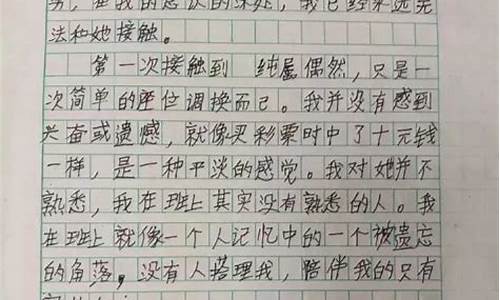 分，在我的意识的深处，我已经永远无
法和她接触。
第一次接触到 纯属偶然，只是一
次简单的座位调换而已。我并没有感到
兴奋或遗憾，就像买彩票时中了十元钱
一样，是一种平淡的感觉。我对她并不
熟悉，我在班上其实没有熟悉的人。我
在班上就像一个人记忆中的一个被遗忘
的角落。没有人搭理我，陪伴我的只有